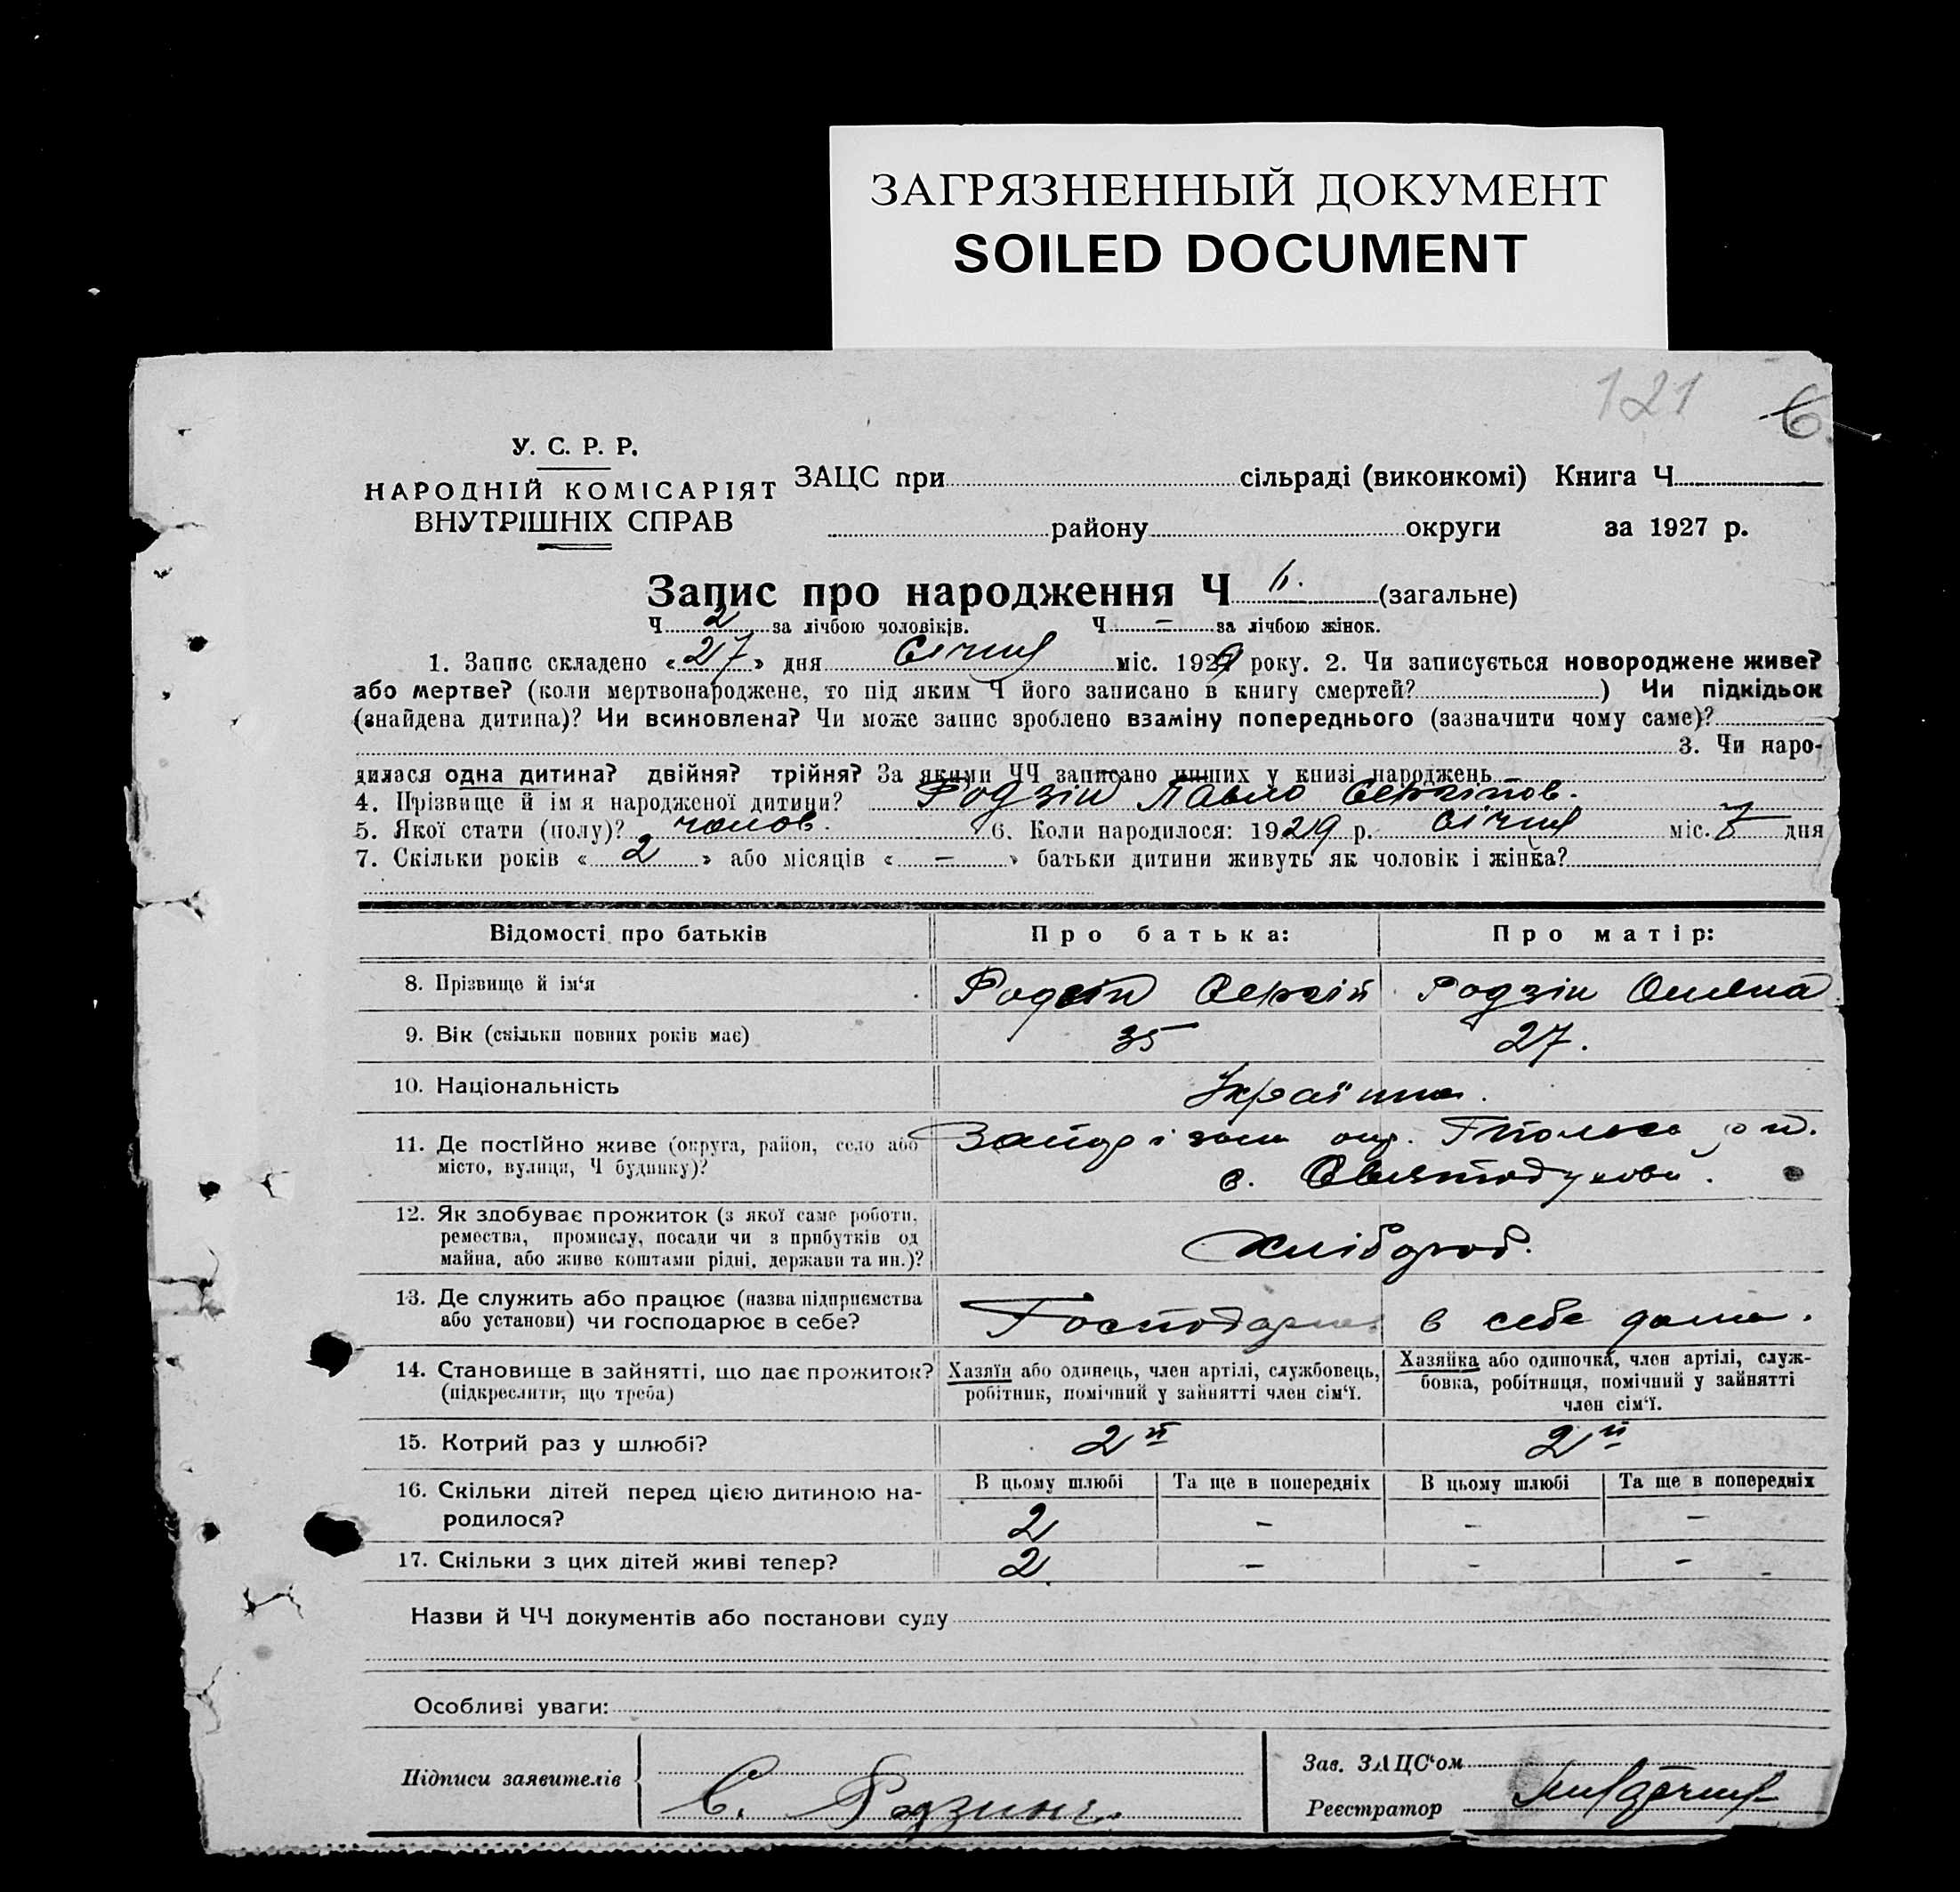 ЗАГРЯЗНЕННЫЙ ДОКУМЕНТ
SOILED DOCUMENT
121 6
У. С. Р. Р.
НАРОДНІЙ КОМІСАРІЯТ
ВНУТРІШНІХ СПРАВ
ЗАЦС при сільраді (виконкомі) Книга Ч.
району округи за 1927 р.
Запис про народження Ч (загальне)
Ч. 2 за лічбою чоловіків. Ч. – за лічбою жінок.
1. Запис складено «27» дня Січня міс. 1929 року. 2. Чи записується новороджене живе?
або мертве? (коли мертвонароджене, то під яким Ч його записано в книгу смертей? ) Чи підкідьок
(знайдена дитина)? Чи всиновлена? Чи може запис зроблено взаміну попереднього (зазначити чому саме)?
3. Чи наро-
дилася одна дитина? двійня? трійня? За якими ЧЧ записано инших у книзі народжень –
4. Прізвище й ім'я народженої дитини? Родзін Павло Сергіїов.
5. Якої стати (полу)? чолов. 6. Коли народилося: 1929 р. січня міс. 7 дня
7. Скільки років «2» або місяців «–» батьки дитини живуть як чоловік і жінка?
Відомості про батьків
Про батька:
Про матір:
8. Прізвище й ім'я Родзін Сергій Родзін Олена
9. Вік (скільки повних років має) 35 27.
10. Національність Українка.
11. Де постійно живе (округа, район, село або
місто, вулиця, Ч будинку)?
с.
12. Як здобуває прожиток (з якої саме роботи,
ремества, промислу, посади чи з прибутків од
майна, або живе коштами рідні, держави та ин.)?
Хлібороб.
13. Де служить або працює (назва підприємства
або установи) чи господарює в себе?
в себе дома.
14. Становище в зайнятті, що дає прожиток?
(підкреслити, що треба)
Хазяїн або одинець, член артілі, службовець,
робітник, помічний у зайнятті член сім'ї.
Хазяйка або одиночка, член артілі, служ-
бовка, робітниця, помічний у зайнятті
член сім'ї.
15. Котрий раз у шлюбі? 2й 2й
16. Скільки дітей перед цією дитиною на-
родилося?
В цьому шлюбі Та ще в попередніх В цьому шлюбі Та ще в попередніх
2 – – –
17. Скільки з цих дітей живі тепер? 2 – – –
Назви й ЧЧ документів або постанови суду
Особливі уваги:
Підписи заявителів
С.
Зав. ЗАЦС'ом
Реєстратор